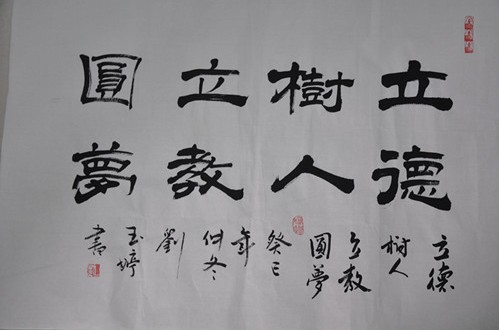 立德
樹人
立教
圓夢
立德
樹人
立教
圓夢
癸巳
年
仲冬
劉
玉婷
書